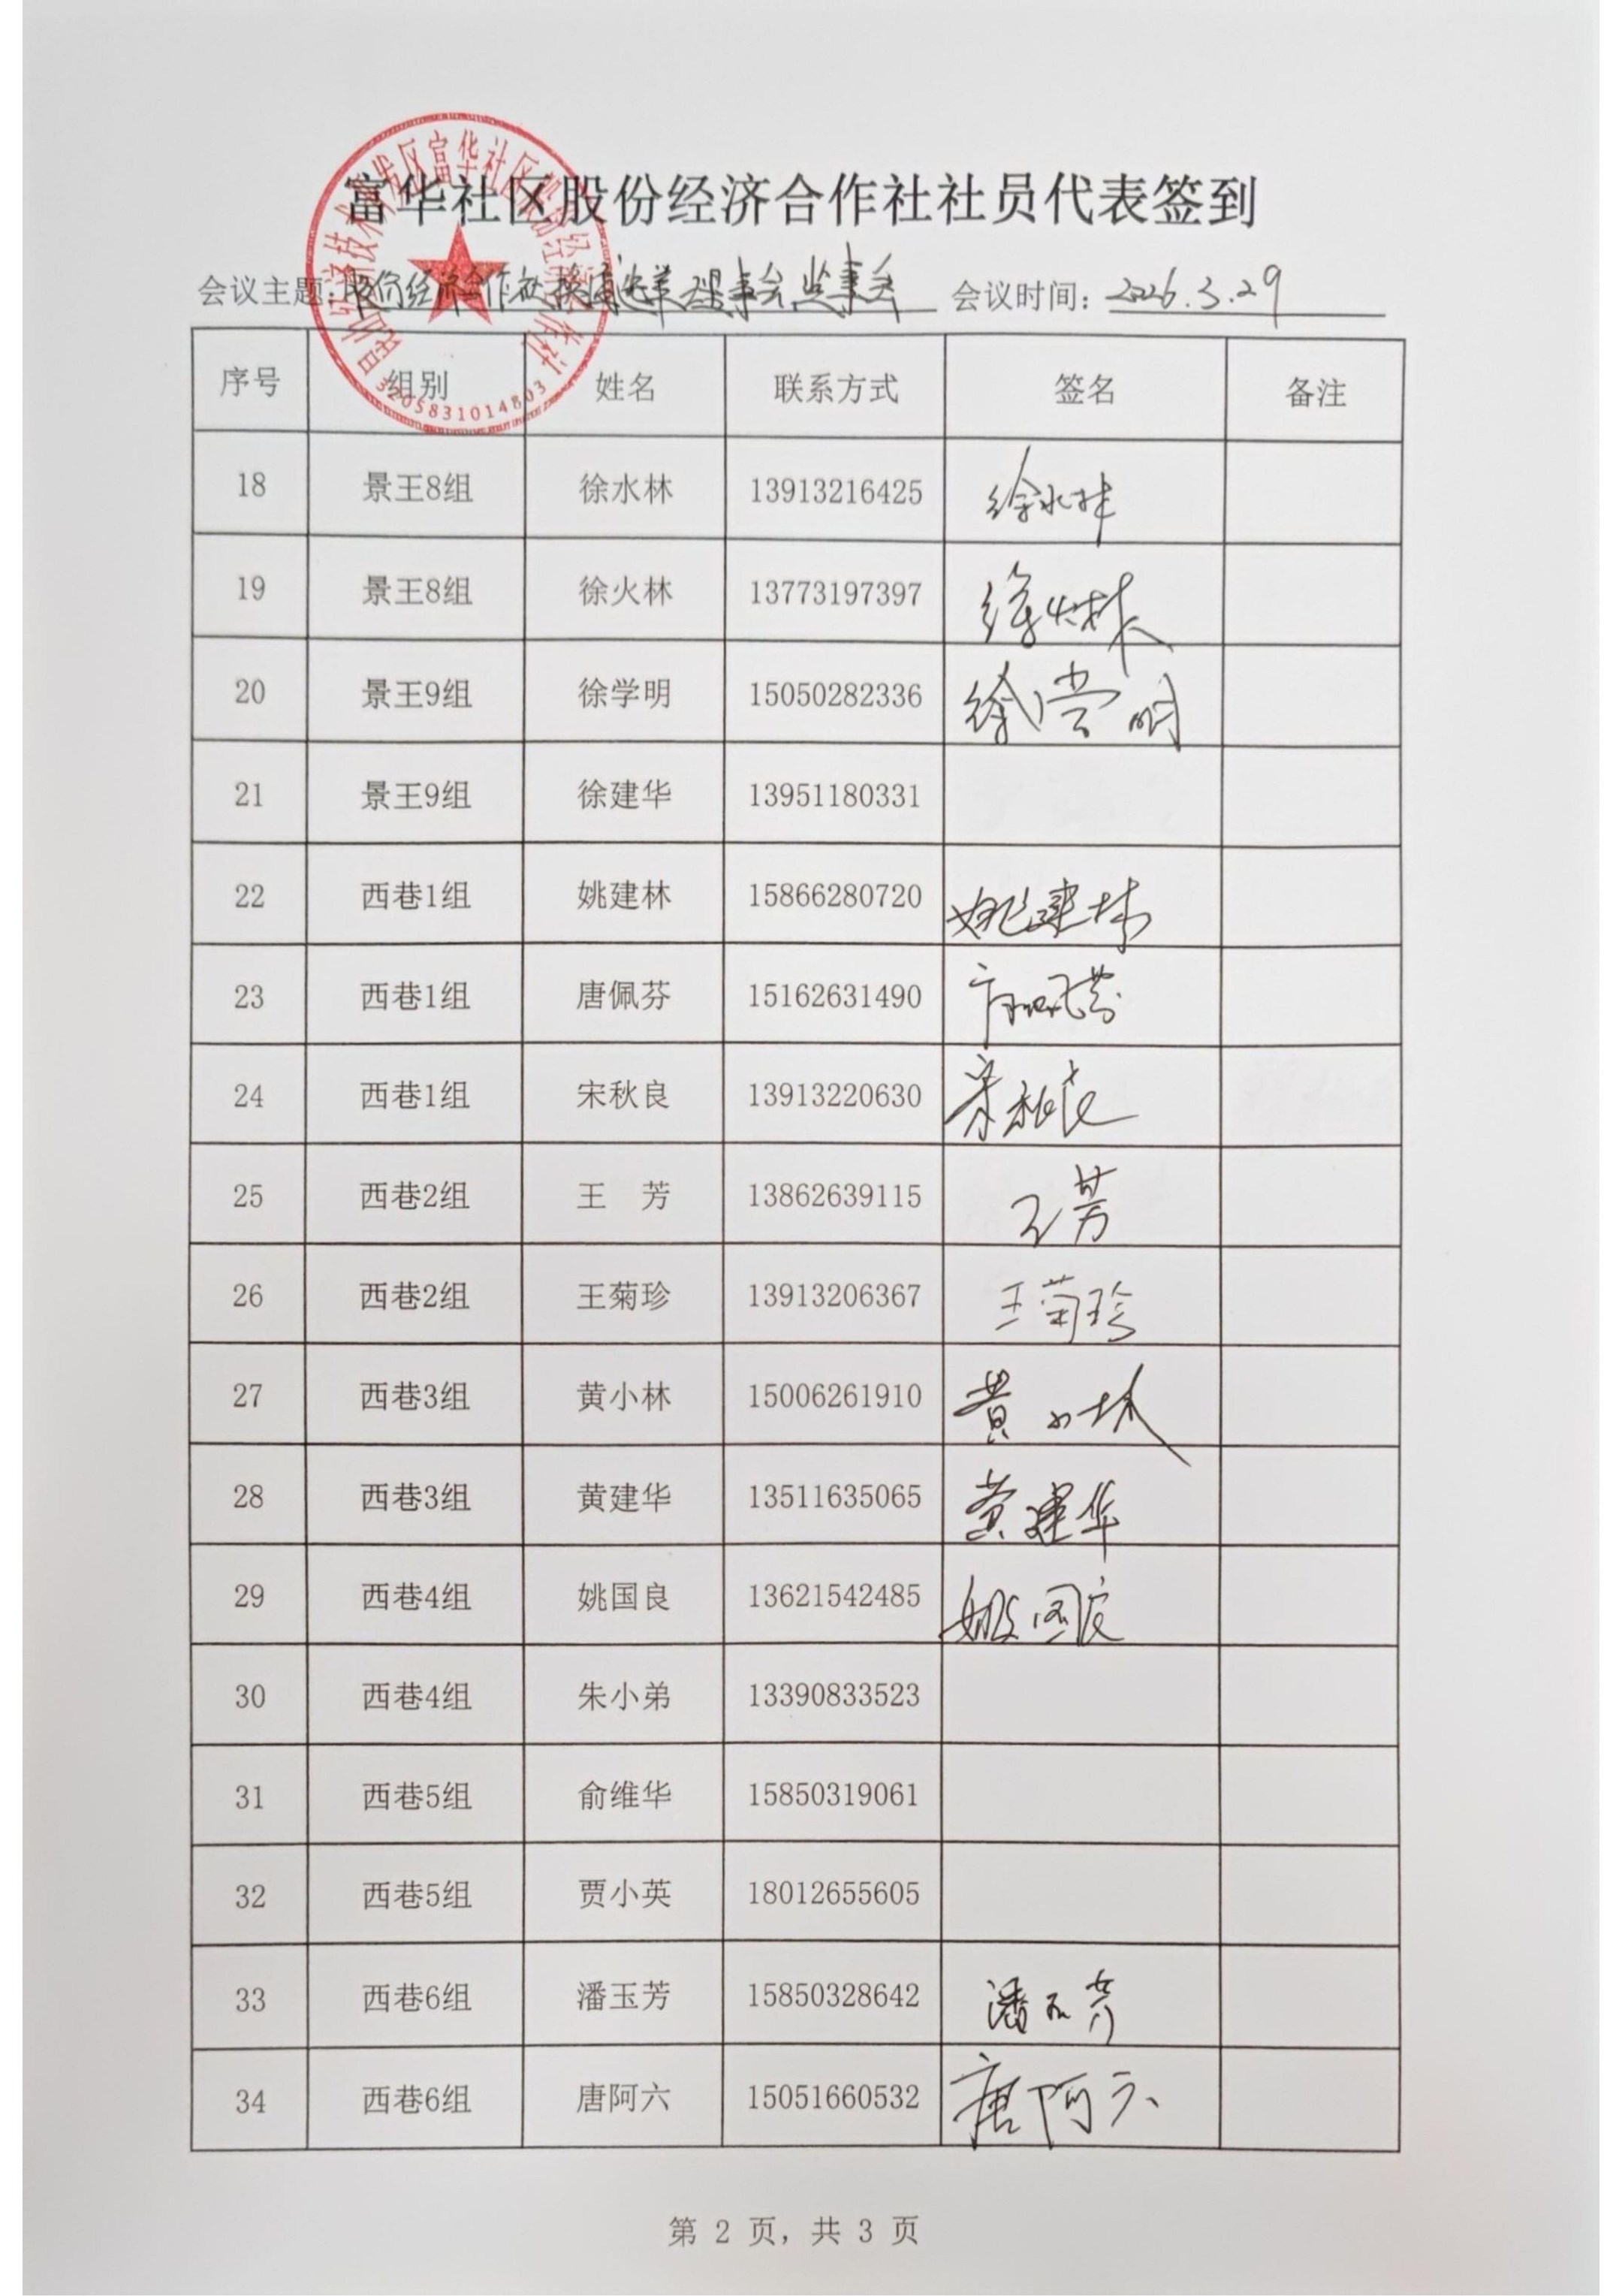 富华社区股份经济合作社社员代表签到
会议主题:股份经济合作社换届选举理事会监事会 会议时间:2026.3.29
昆山经济技术开发区富华社区股份经济合作社
3205831014803
序号 组别 姓名 联系方式 签名 备注
18 景王8组 徐水林 13913216425 徐水林
19 景王8组 徐火林 13773197397 徐火林
20 景王9组 徐学明 15050282336 徐学明
21 景王9组 徐建华 13951180331
22 西巷1组 姚建林 15866280720 姚建林
23 西巷1组 唐佩芬 15162631490 唐佩芬
24 西巷1组 宋秋良 13913220630 宋秋良
25 西巷2组 王 芳 13862639115 王芳
26 西巷2组 王菊珍 13913206367 王菊珍
27 西巷3组 黄小林 15006261910 黄小林
28 西巷3组 黄建华 13511635065 黄建华
29 西巷4组 姚国良 13621542485 姚国良
30 西巷4组 朱小弟 13390833523
31 西巷5组 俞维华 15850319061
32 西巷5组 贾小英 18012655605
33 西巷6组 潘玉芳 15850328642 潘玉芳
34 西巷6组 唐阿六 15051660532 唐阿六
第 2 页，共 3 页